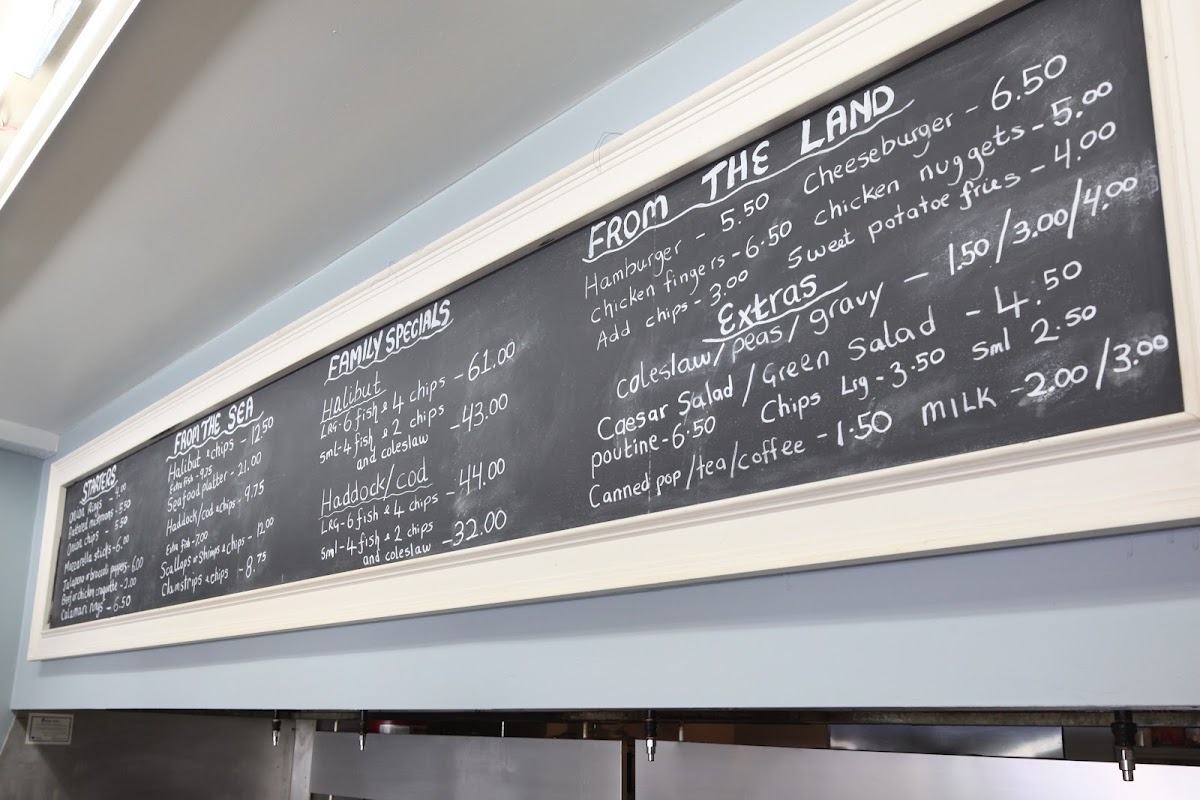 STARTERS
Onion Rings -
Battered mushrooms - 5.50
Onion chips - 5.50
Mozzarella sticks - 6.00
Jalapeno or broccoli poppers - 6.00
Beef or chicken croquette - 2.00
Calamari rings - 6.50
FROM THE SEA
Halibut & chips - 12.50
Extra fish - 9.75
Seafood platter - 21.00
Haddock/cod & chips - 9.75
Extra fish - 7.00
Scallops or Shrimps & chips - 12.00
Clamstrips & chips - 8.75
FAMILY SPECIALS
Halibut
LRG - 6 fish & 4 chips - 61.00
sml - 4 fish & 2 chips - 43.00
and coleslaw
Haddock/cod
LRG - 6 fish & 4 chips - 44.00
sml - 4 fish & 2 chips
and coleslaw - 32.00
FROM THE LAND
Hamburger - 5.50 Cheeseburger - 6.50
chicken fingers - 6.50 chicken nuggets - 5.00
Add chips - 3.00 Sweet potatoe fries - 4.00
Extras
coleslaw/peas/gravy - 1.50/3.00/4.00
Caesar Salad/Green Salad - 4.50
poutine - 6.50 Chips Lrg - 3.50 Sml 2.50
Canned pop/tea/coffee - 1.50 MILK - 2.00/3.00